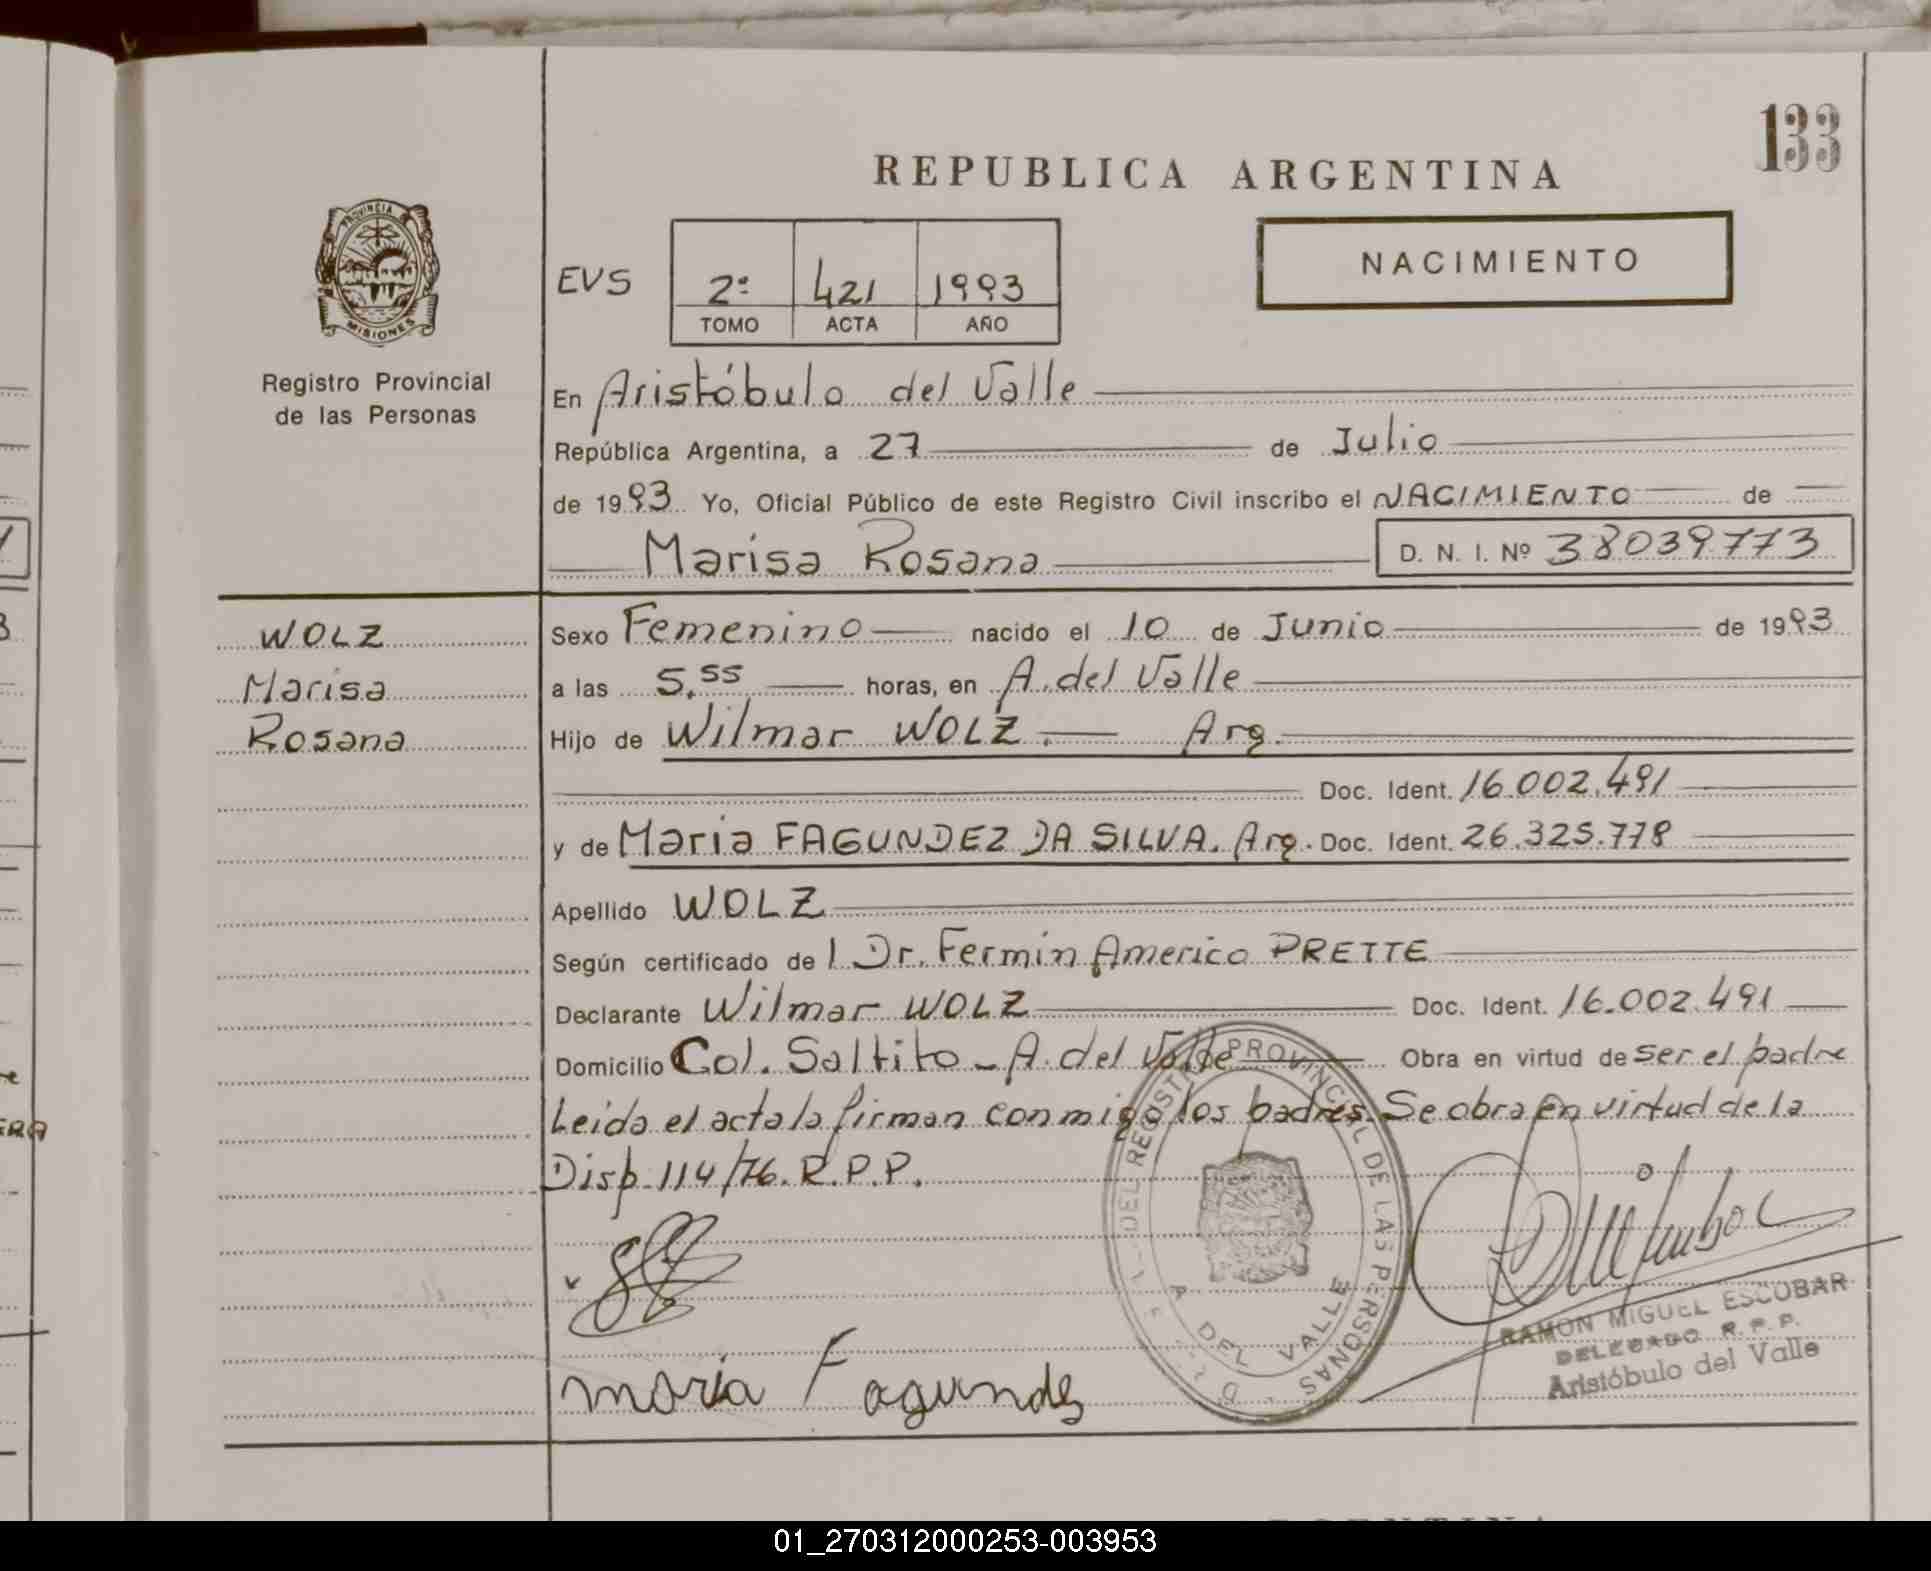 133
REPUBLICA ARGENTINA
NACIMIENTO
PROVINCIA
MISIONES
Registro Provincial
de las Personas
EVS
2º 421 1993
TOMO ACTA AÑO
En Aristóbulo del Valle
República Argentina, a 27 de Julio
de 1993 Yo, Oficial Público de este Registro Civil inscribo el NACIMIENTO de
Marisa Rosana D. N. I. Nº 38039773
WOLZ
Marisa
Rosana
Sexo Femenino nacido el 10 de Junio de 1993
a las 5.55 horas, en A. del Valle
Hijo de Wilmar WOLZ. Arg.
Doc. Ident. 16.002.491
y de Maria FAGUNDEZ DA SILVA. Arg. Doc. Ident. 26.325.778
Apellido WOLZ
Según certificado de l Dr. Fermin Americo PRETTE
Declarante Wilmar WOLZ Doc. Ident. 16.002.491
Domicilio Col. Saltito - A. del Valle Obra en virtud de ser el padre
Leida el acta la firman conmigo los padres. Se obra en virtud de la
Disp. 114/76. R.P.P.
DEL REGISTRO PROVINCIAL DE LAS PERSONAS
A. DEL VALLE
maria Fagundez
RAMON MIGUEL ESCOBAR
DELEGADO R. P. P.
Aristóbulo del Valle
ERA
01_270312000253-003953